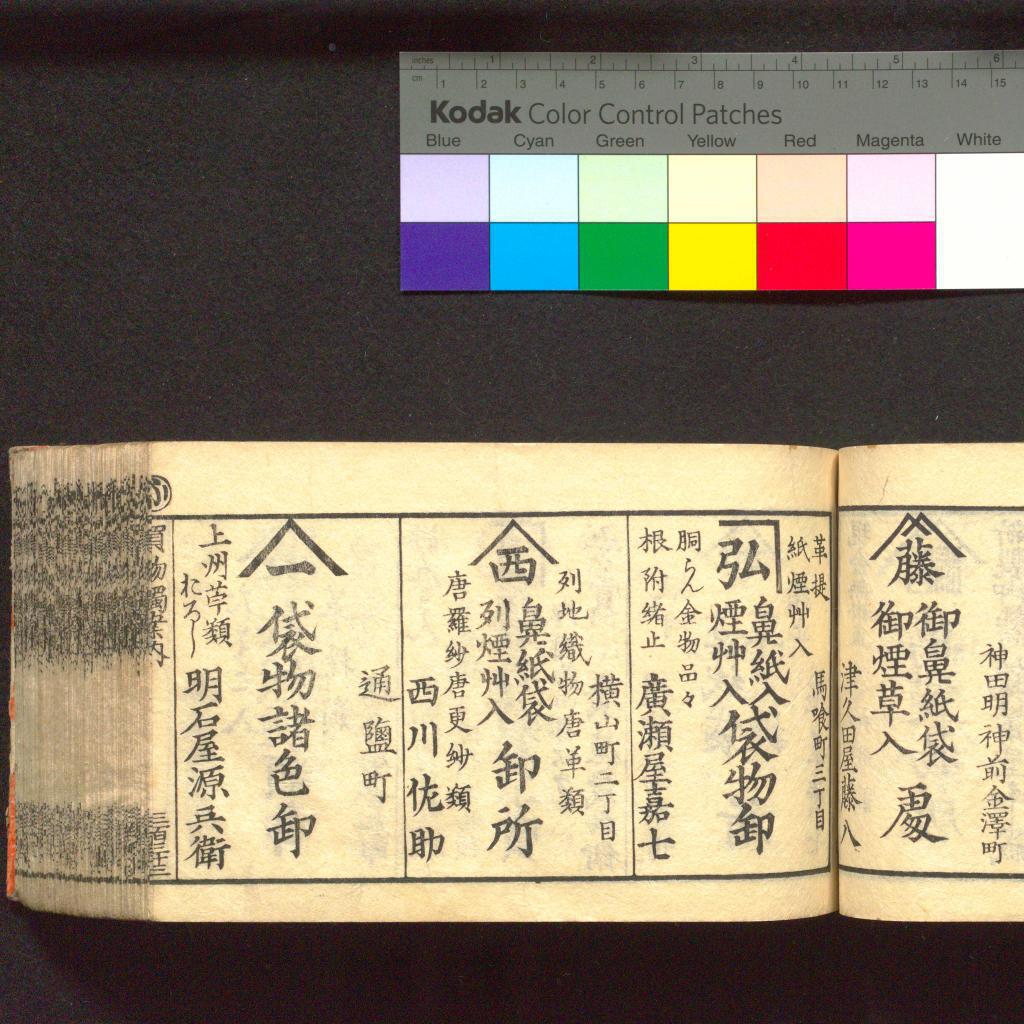 inches 1 2 3 4 5 6
cm 1 2 3 4 5 6 7 8 9 10 11 12 13 14 15
Kodak Color Control Patches
Blue Cyan Green Yellow Red Magenta White
神田明神前金澤町
藤
御鼻紙袋
御煙草入
津久田屋藤八
革提
紙煙艸入
馬喰町三丁目
弘
鼻紙入
煙艸入
袋物卸
胴らん金物品々
根附緒止
廣瀬屋嘉七
横山町二丁目
列地織物唐革類
西
鼻紙袋
列煙艸入
卸所
唐羅紗唐更紗類
西川佐助
通鹽町
一
袋物諸色卸
上州芦類
おろし
明石屋源兵衛
買物獨案内